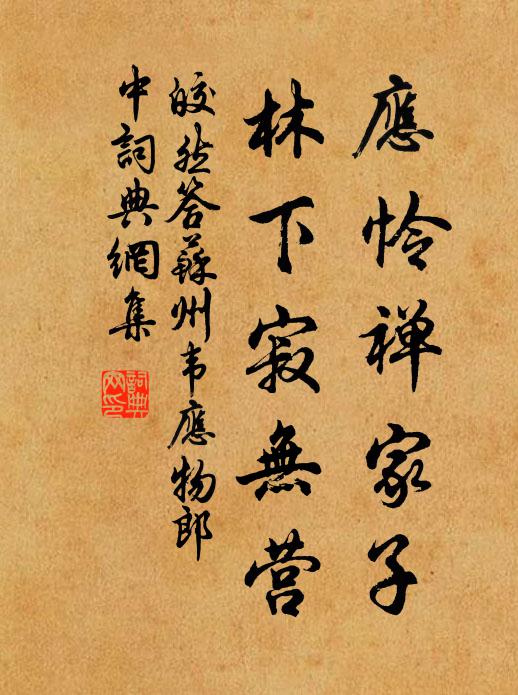 應怜禅家子
林下寂無营
皎然答蘇州韦應物郎
中詞典網集
詞典
网印